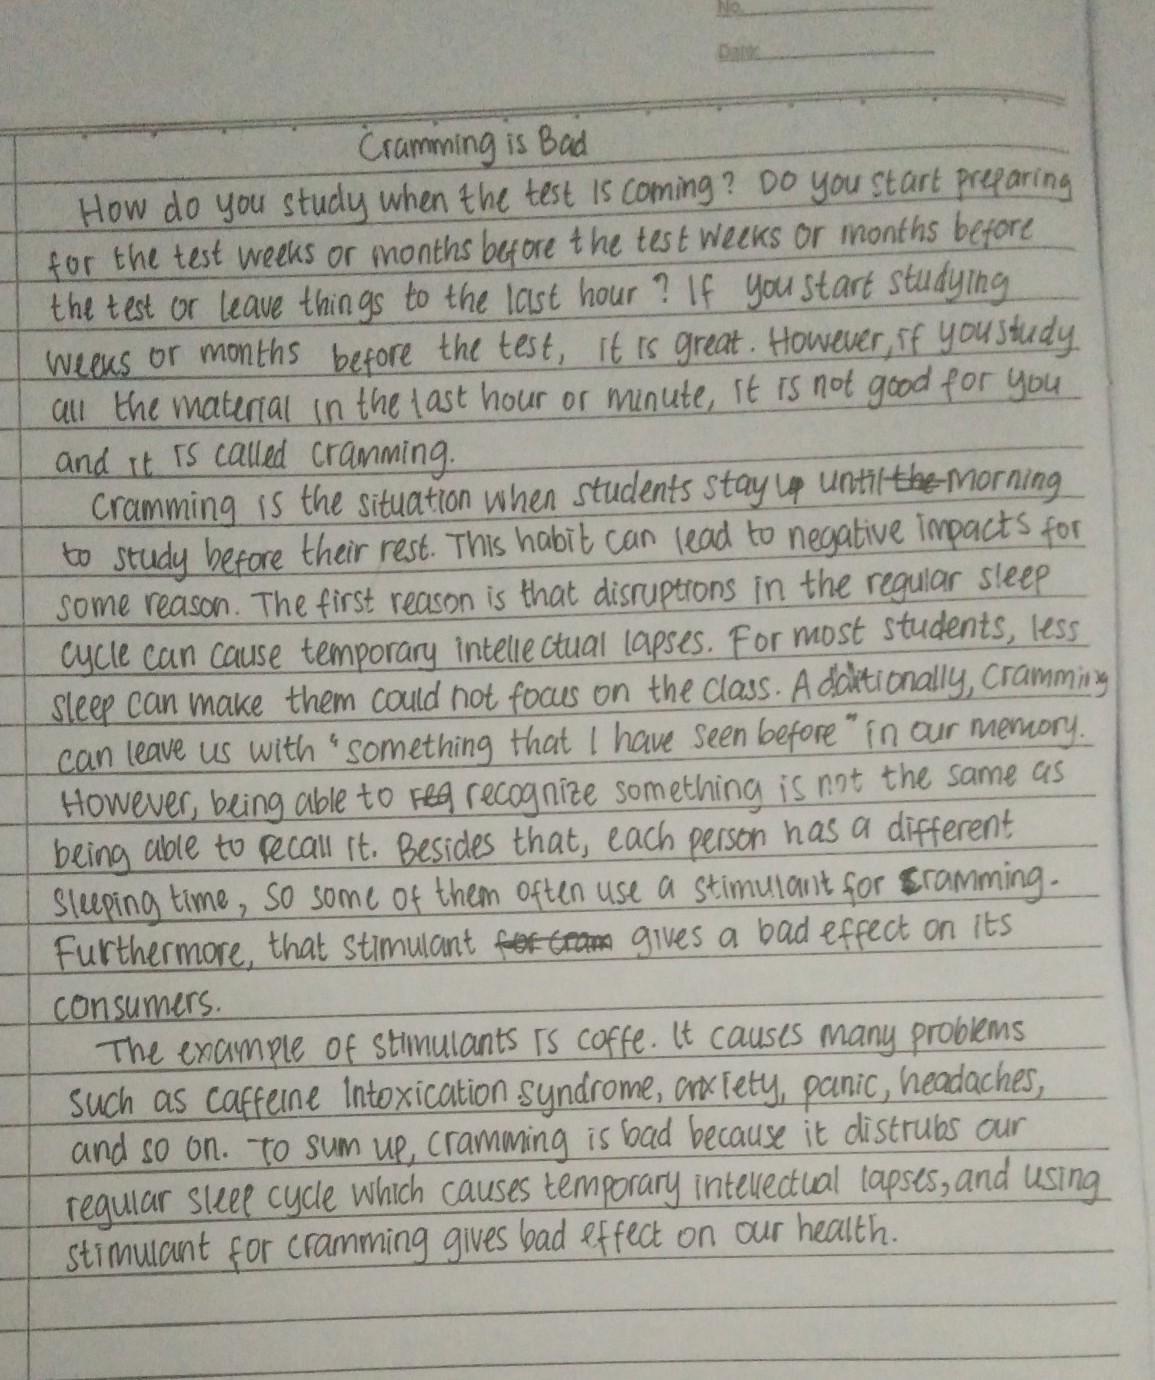 No.
Date
Cramming is Bad
How do you study when the test is coming? Do you start preparing
for the test weeks or months before the test weeks or months before
the test or leave things to the last hour? If you start studying
weeks or months before the test, it is great. However, if you study
all the material in the last hour or minute, it is not good for you
and it is called cramming.
Cramming is the situation when students stay up until the morning
to study before their rest. This habit can lead to negative impacts for
some reason. The first reason is that disruptions in the regular sleep
cycle can cause temporary intellectual lapses. For most students, less
sleep can make them could not focus on the class. Additionally, cramming
can leave us with "something that I have seen before" in our memory.
However, being able to reg recognize something is not the same as
being able to recall it. Besides that, each person has a different
sleeping time, so some of them often use a stimulant for cramming.
Furthermore, that stimulant for cram gives a bad effect on its
consumers.
The example of stimulants is coffe. It causes many problems
such as caffeine Intoxication syndrome, anxiety, panic, headaches,
and so on. To sum up, cramming is bad because it distrubs our
regular sleep cycle which causes temporary intellectual lapses, and using
stimulant for cramming gives bad effect on our health.